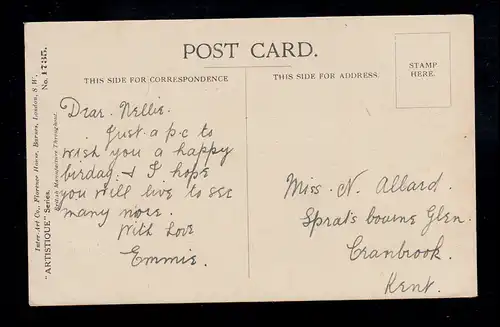 POST CARD.
THIS SIDE FOR CORRESPONDENCE
THIS SIDE FOR ADDRESS.
STAMP
HERE.
Inter-Art Co., Florence House, Barnes, London, S.W.
"ARTISTIQUE" Series. No. 1735.
British Manufacture Throughout.
Dear Nellie.
Just a p.c to
wish you a happy
birday. & I hope
you will live to see
many more.
With Love
Emmie.
Miss N. Allard.
Sprats bourne Glen.
Cranbrook.
Kent.